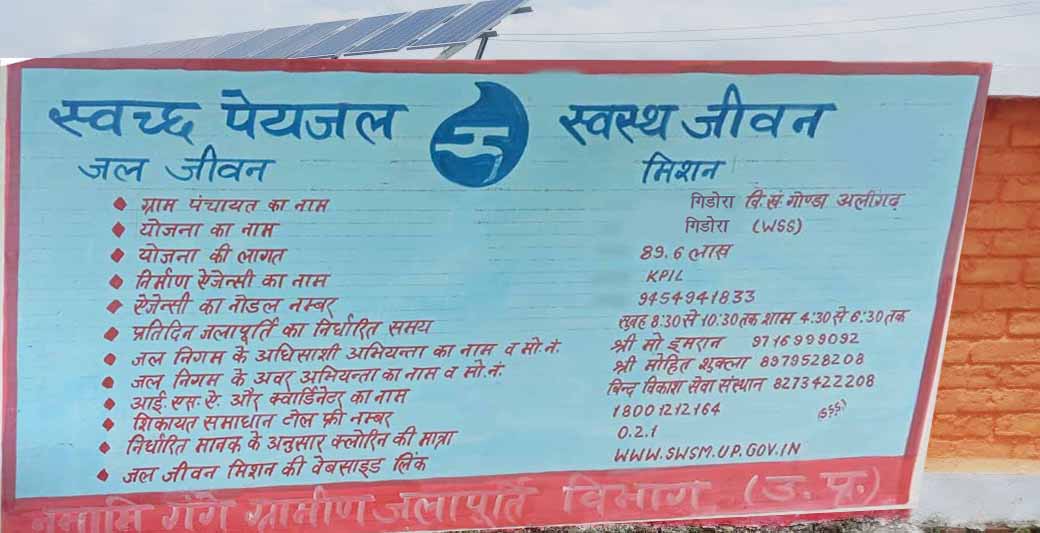 स्वच्छ पेयजल स्वस्थ जीवन
जल जीवन मिशन
ग्राम पंचायत का नाम गिडोरा वि.खं. गोण्डा अलीगढ़
योजना का नाम गिडोरा (WSS)
योजना की लागत 89.6 लाख
निर्माण ऐजेन्सी का नाम KPIL
ऐजेन्सी का नोडल नम्बर 9454941833
प्रतिदिन जलापूर्ति का निर्धारित समय सुबह 8:30 से 10:30 तक शाम 4:30 से 6:30 तक
जल निगम के अधिसाशी अभियन्ता का नाम व मो.नं. श्री मो इमरान 9716999092
जल निगम के अवर अभियन्ता का नाम व मो.नं. श्री मोहित शुक्ला 8979528208
आई. एस. ऐ. और क्वार्डिनेटर का नाम बिन्द विकाश सेवा संस्थान 8273422208
शिकायत समाधान टोल फ्री नम्बर 18001212164
निर्धारित मानक के अनुसार क्लोरिन की मात्रा 0.2.1
जल जीवन मिशन की वेबसाइड लिंक WWW.SWSM.UP.GOV.IN
नमामि गंगे ग्रामीण जलापूर्ति विभाग (उ.प्र.)